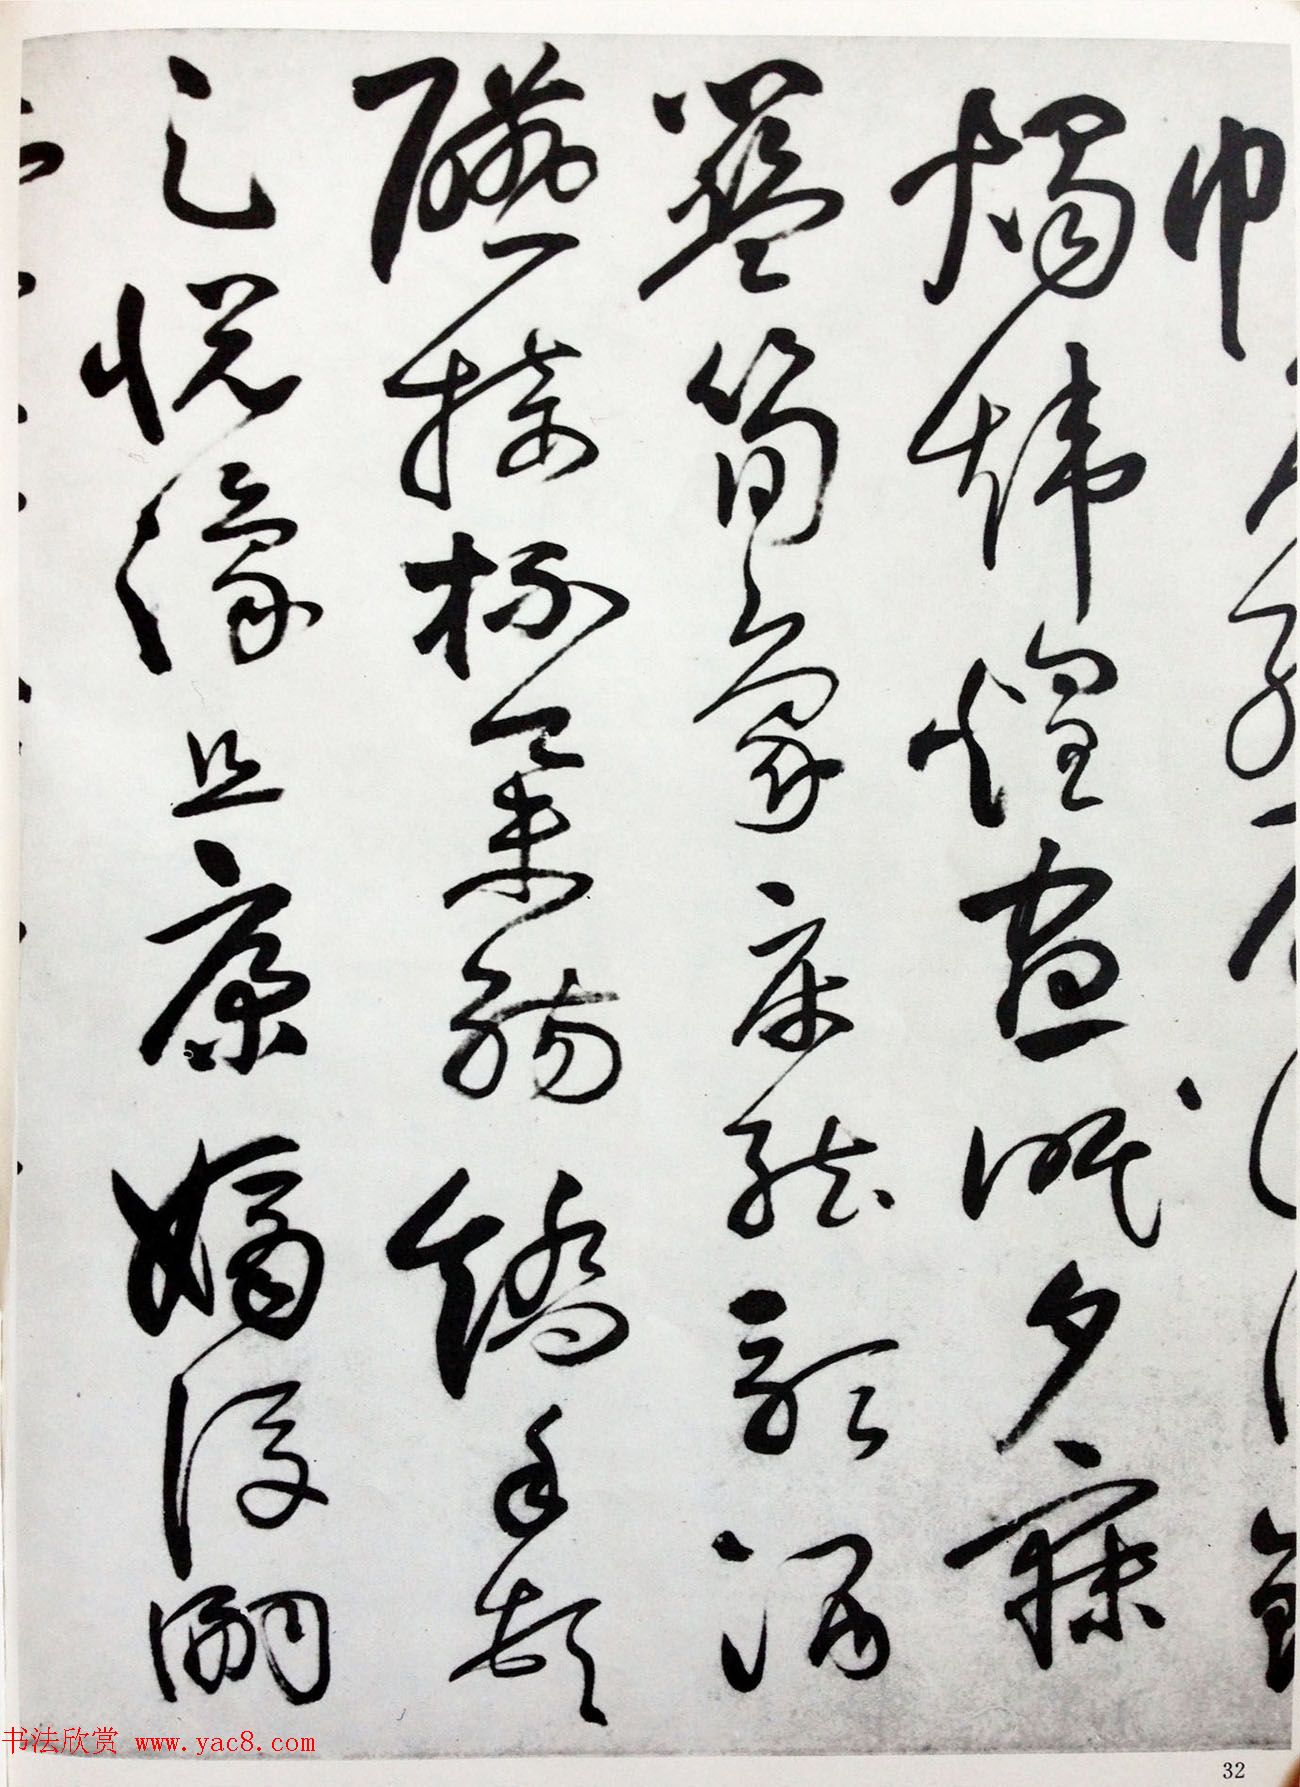 巾
燭煒煌晝眠夕寐
藍筍象床絃歌酒
醼接杯舉觴矯手頓
足悅豫且康嫡後嗣
书法欣赏 www.yac8.com
32